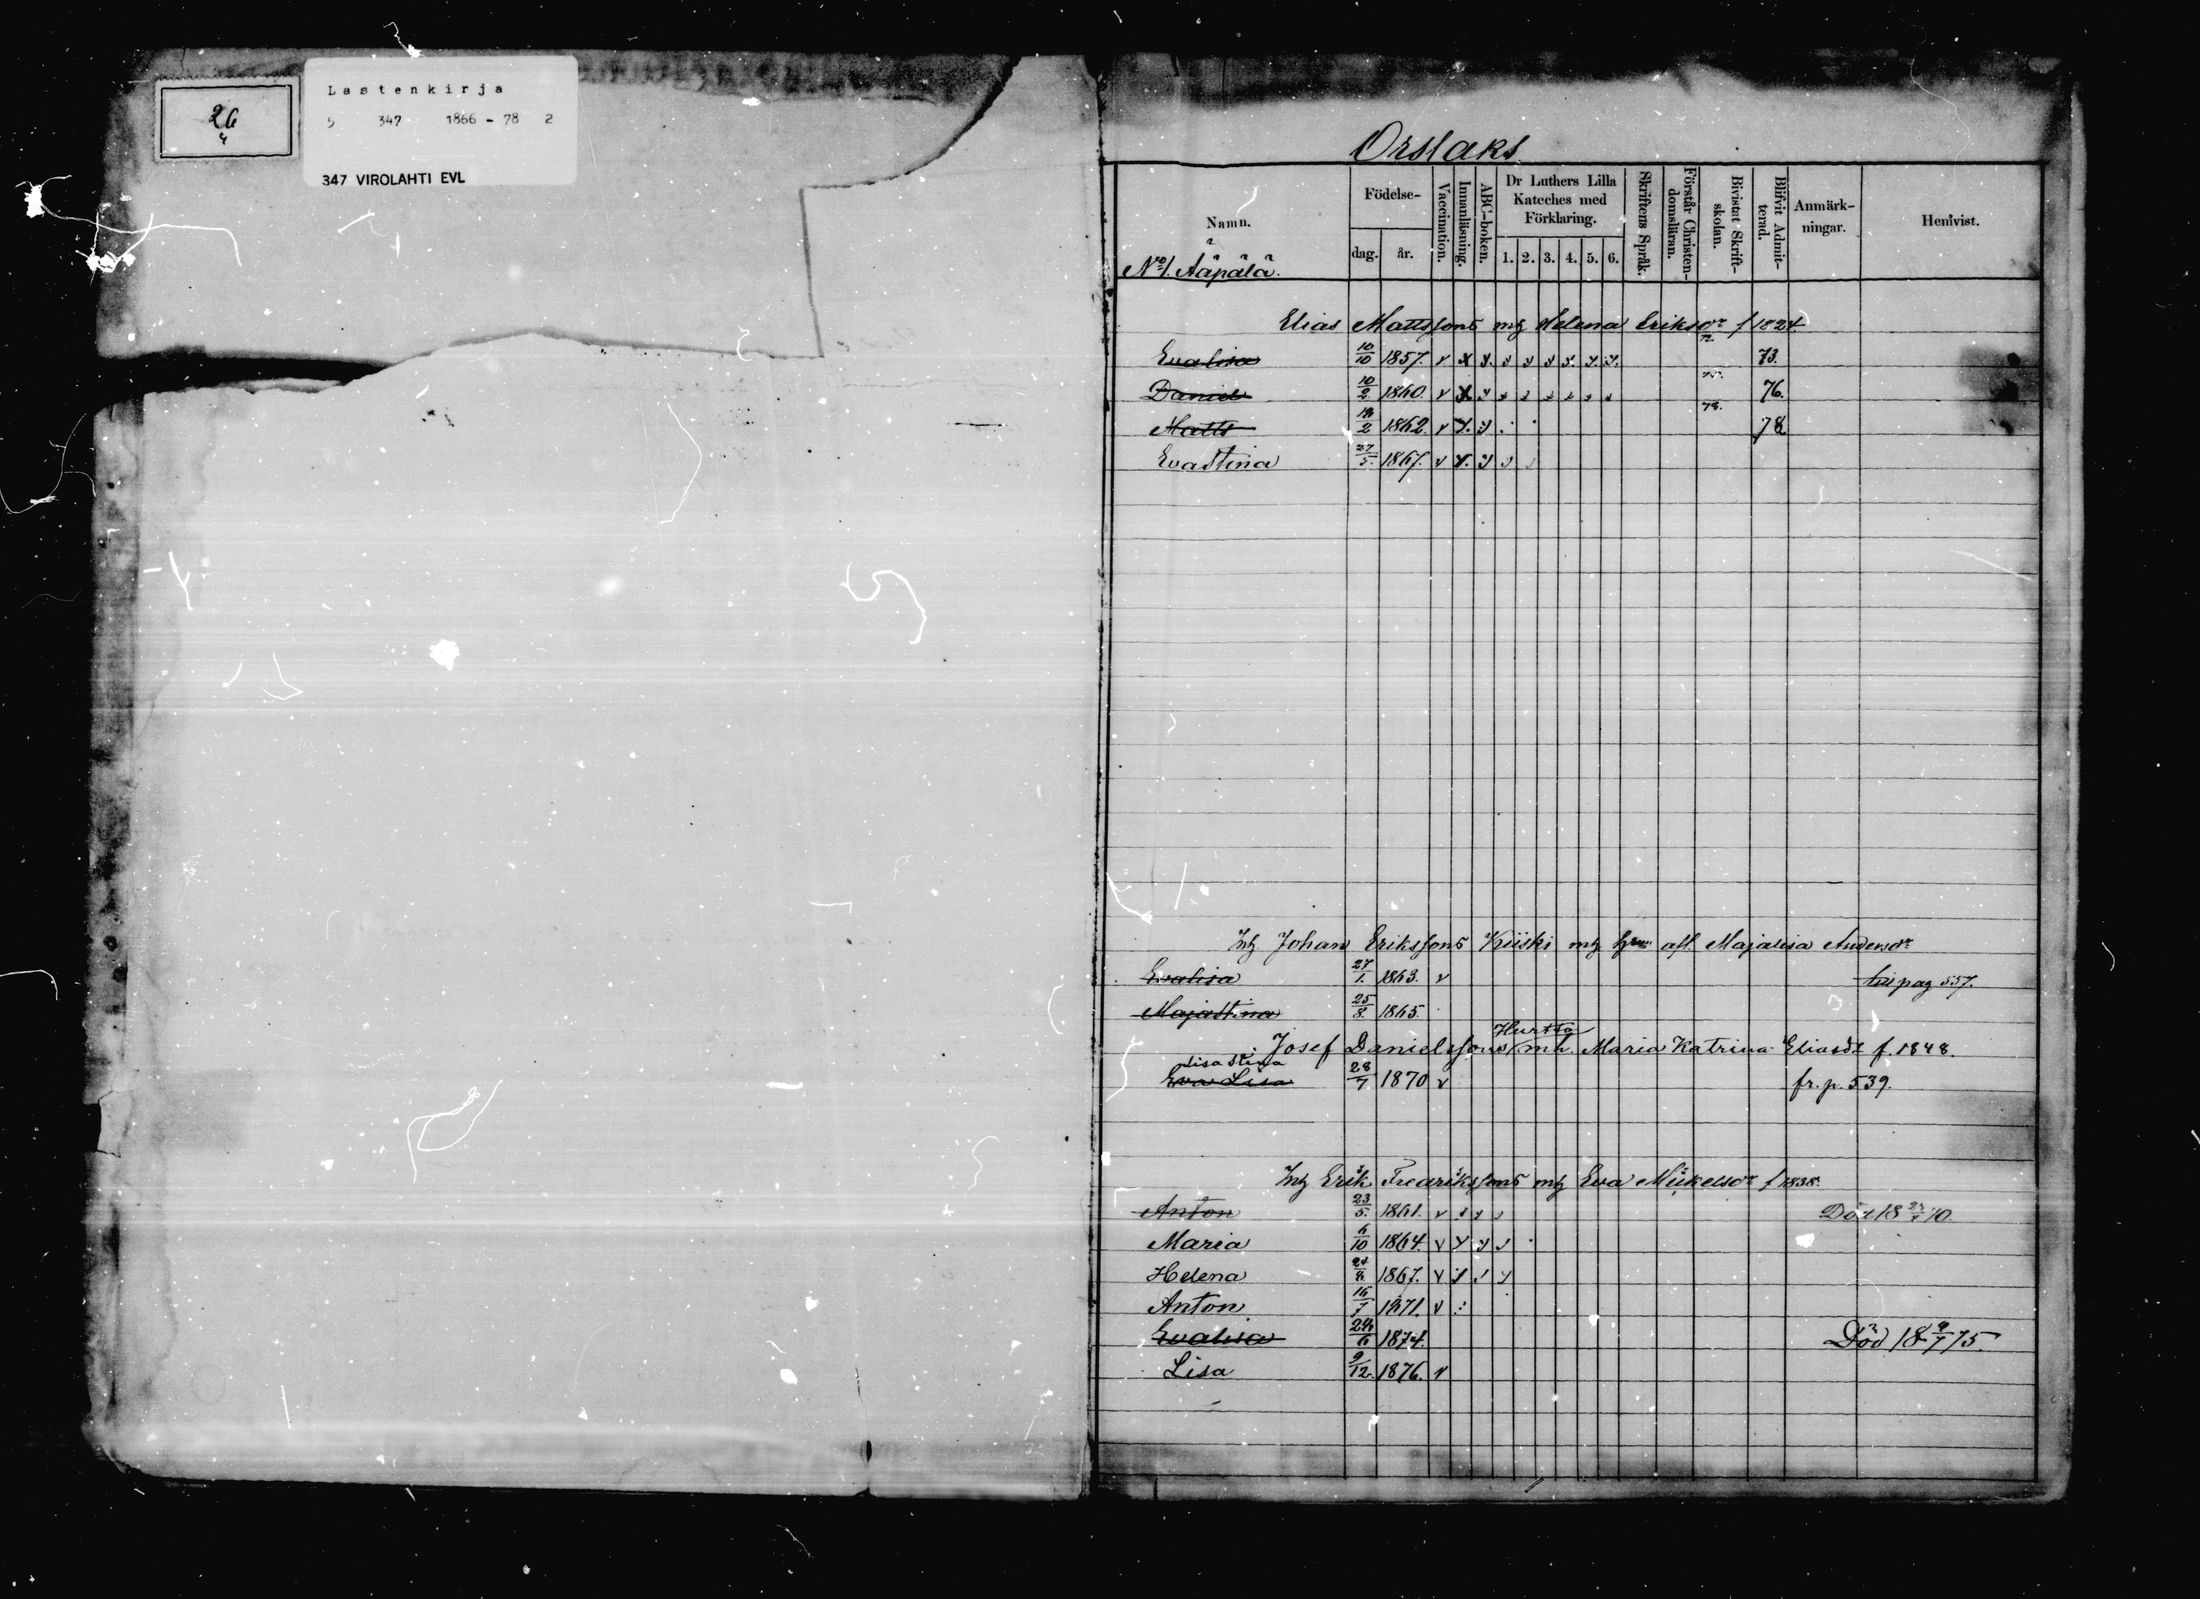 26
4
Lastenkirja
347 1866 - 78 2
347 VIROLAHTI EVL
Orslaks
Namn.
Födelse-
dag.
år.
Vaccination.
Innanläsning.
ABC-boken.
Dr Luthers Lilla Kateches med Förklaring.
1. 2. 3. 4. 5. 6.
Skriftens Språk.
Förstår Christendomsläran.
Bivistat Skriftskolan.
Blifvit Admitterad.
Anmärkningar.
Hemvist.
No 1. Ääpälä.
Elias Mattssons mh Helena Eriksdr f 1824
Evalisa 10/10 1857. 73.
Daniel 10/2 1860. 76.
Matts 2 1862 78. 78
Evastina 27/5 1867.
Inh Johan Erikssons Kiiski mh afl. Majalisa Andersdr
Evalisa 27/1. 1863. till pag 557.
Majastina 25/8. 1865.
Hurtta
Josef Danielssons mh. Maria Katrina Eliasdr f. 1848.
Lisa Stina
Eva Lisa 28/7 1870 fr. p. 539.
Inh Erik Fredrikssons mh Eva Mickelsdr f 1838.
Anton 23/5. 1861. Död 18 70.
Maria 6/10 1864.
Helena 1867.
Anton 16/7 1871.
Evalisa 6 1874. Död 18 9/7 75.
Lisa 9/12. 1876.